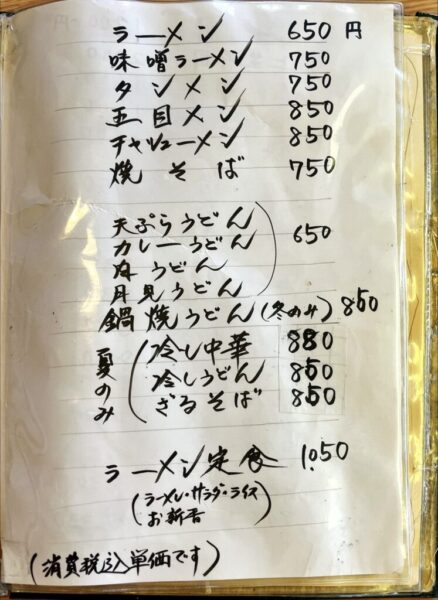 ラーメン 650円
味噌ラーメン 750
タンメン 750
五目メン 850
チャシューメン 850
焼そば 750
天ぷらうどん
カレーうどん 650
肉うどん
月見うどん
鍋焼うどん(冬のみ) 850
夏のみ
冷し中華 880
冷しうどん 850
ざるそば 850
ラーメン定食 1,050
(ラーメン・サラダ・ライス
お新香)
(消費税込単価です)